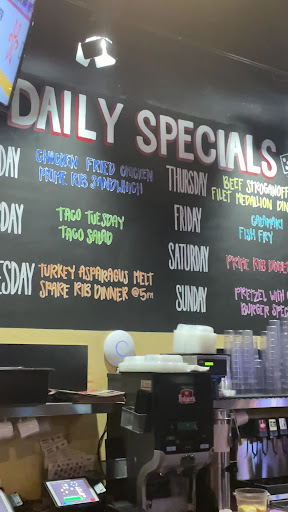 DAILY SPECIALS
DAY
CHICKEN FRIED CHICKEN
PRIME RIB SANDWICH
DAY
TACO TUESDAY
TACO SALAD
ESDAY
TURKEY ASPARAGUS MELT
SPARE RIB DINNER @5pm
THURSDAY
BEEF STROGANOFF
FILET MEDALLION DIN
FRIDAY
CALAMARI
FISH FRY
SATURDAY
PRIME RIB DINNE
SUNDAY
PRETZEL WITH
BURGER SPEC